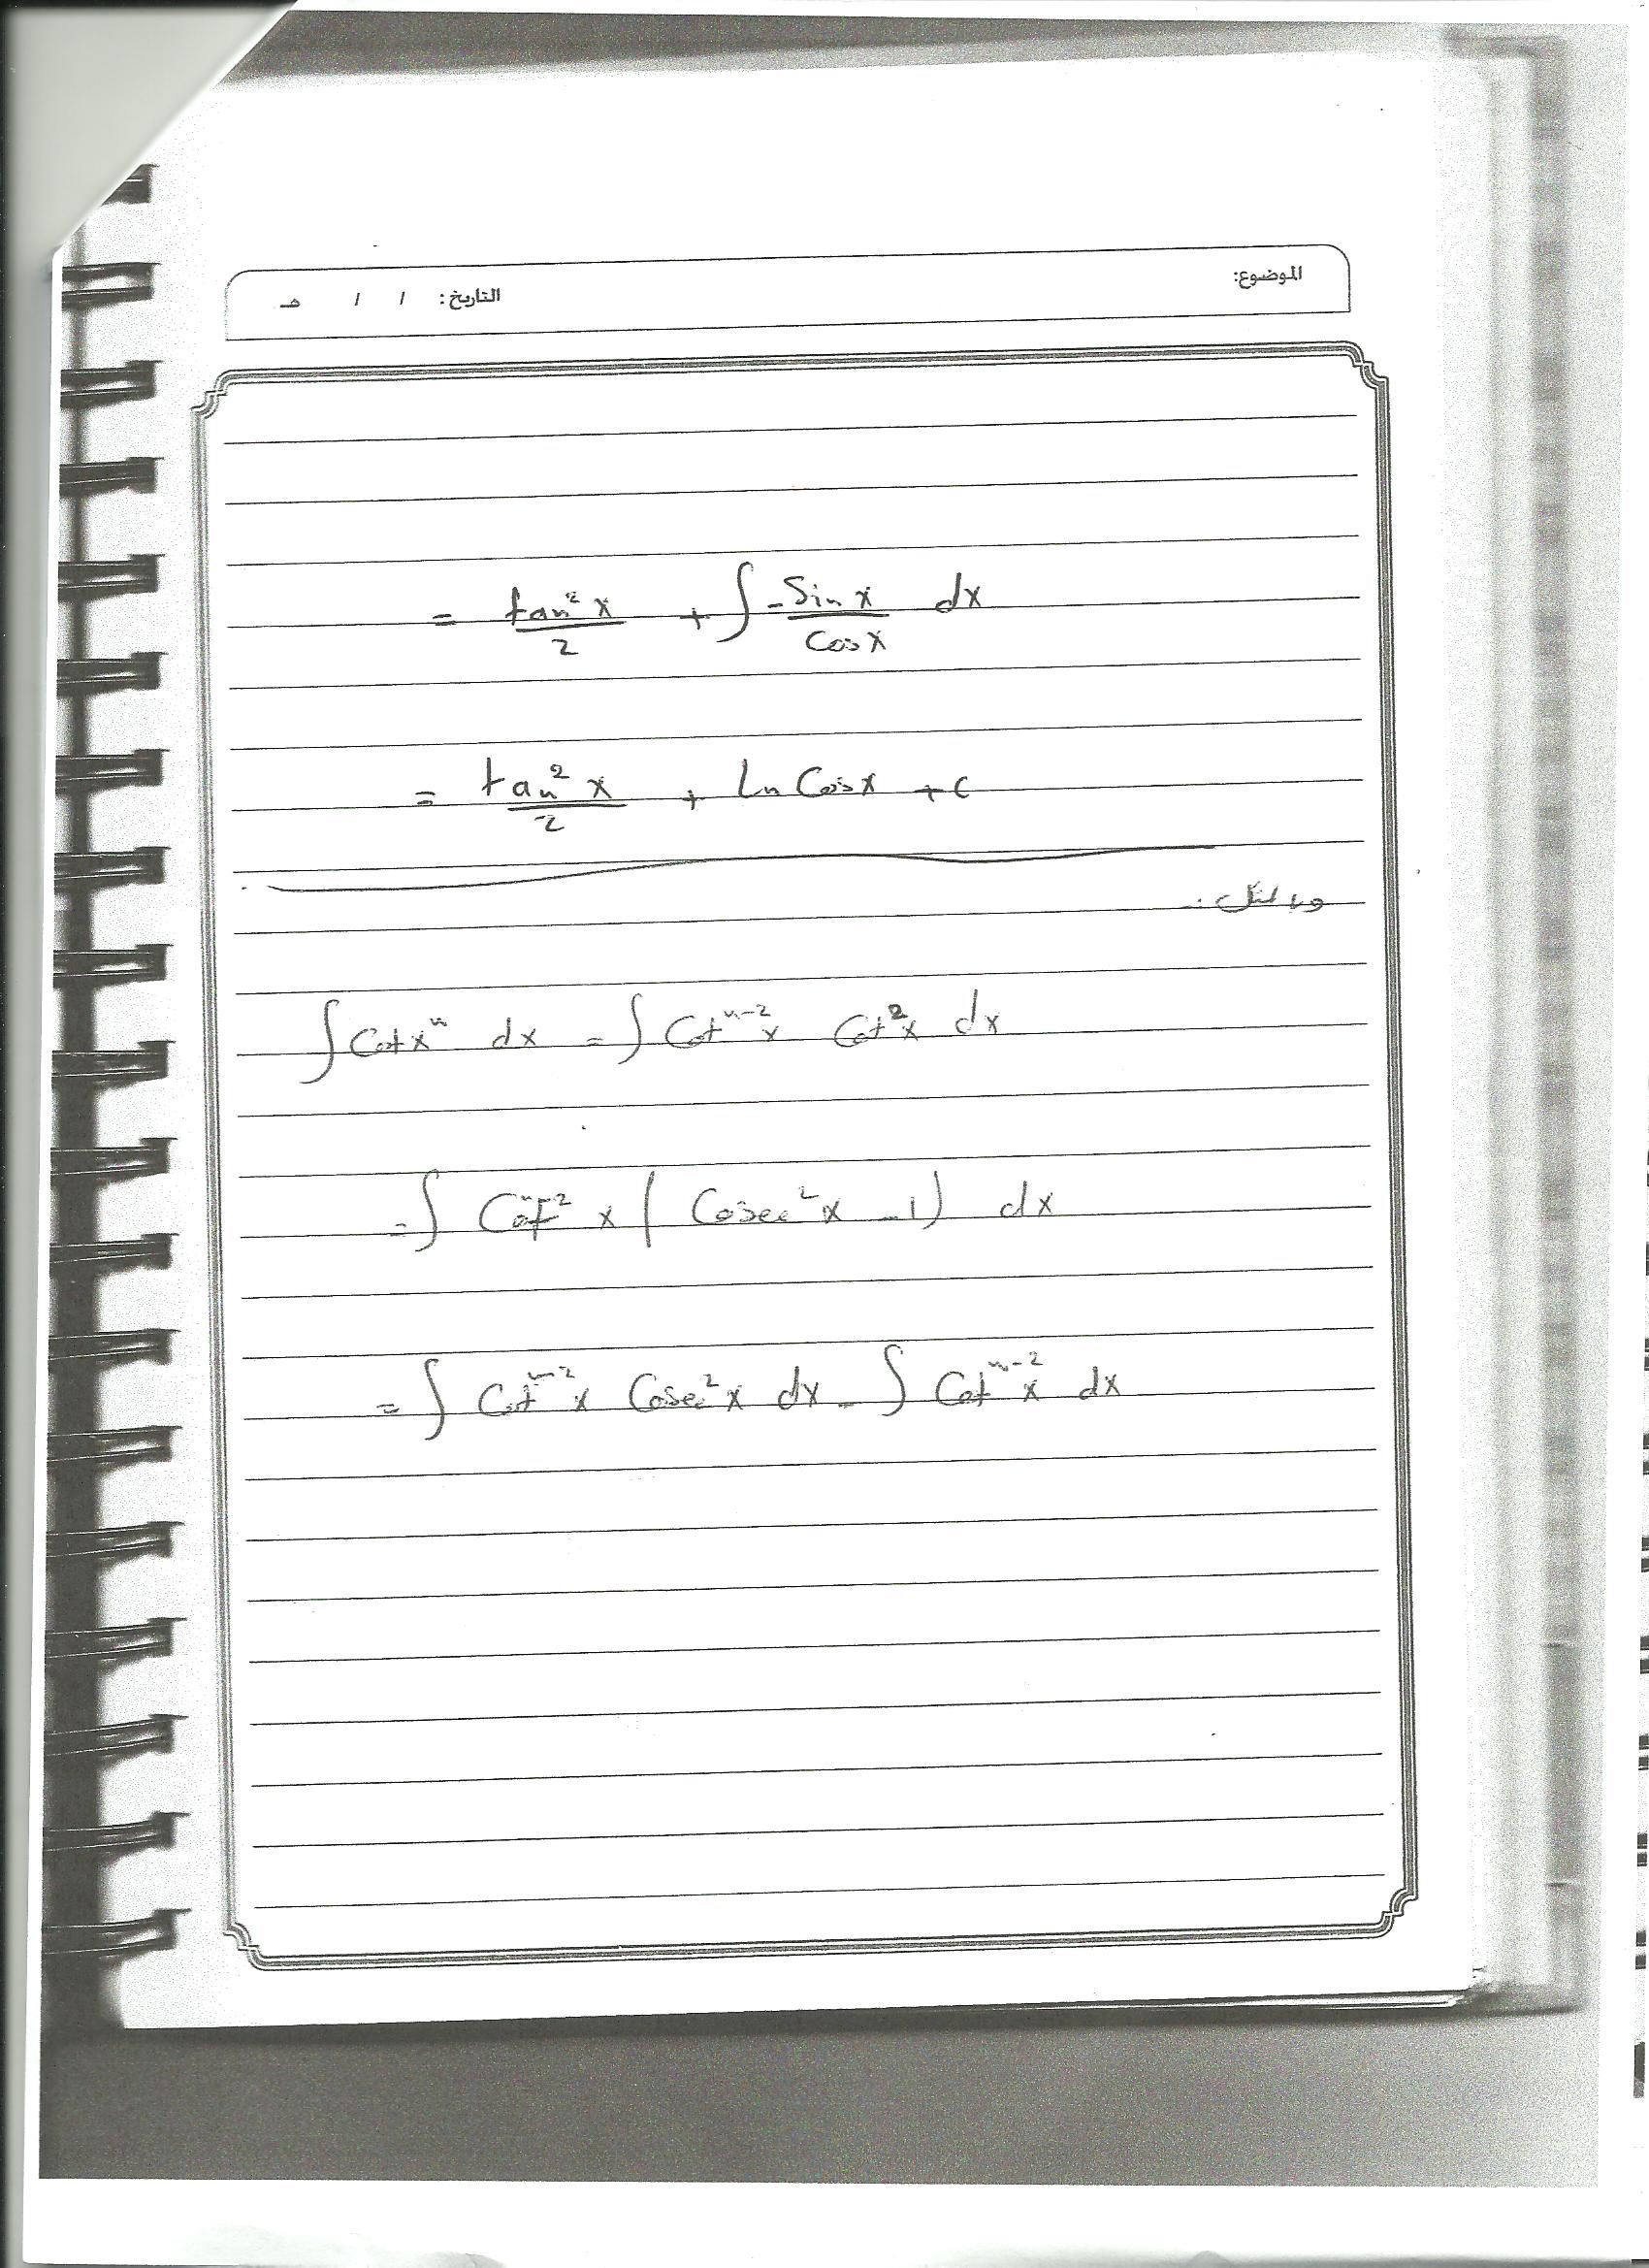 الموضوع:
التاريخ: / / هـ
= tan²x/2 + ∫ -Sin x/Cos x dx
= tan²x/2 + Ln Cos x + c
وبالمثل :
∫ Cot xⁿ dx = ∫ Cotⁿ⁻²x Cot²x dx
= ∫ Cotⁿ⁻²x ( Cosec²x - 1) dx
= ∫ Cotⁿ⁻²x Cosec²x dx - ∫ Cotⁿ⁻²x dx